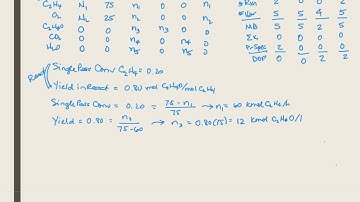 C2H4 N1 75 n1 0 0 n1
O2 N2 25 n2 0 0 n2
C2H4O 0 n3 n3 0 0
CO2 0 n4 0 n4 0
H2O 0 n5 0 n5 0
5 5 4 5
MB 5 5 2 5
2 0 0 0
DOF 0 0 2 2
React
Single Pass Conv C2H4 = 0.20
Yield in React = 0.80 mol C2H4O/mol C2H4
Single Pass Conv = 0.20 = 75 - n1 / 75 → n1 = 60 kmol C2H4/h
Yield = 0.80 = n3 / 75-60 → n3 = 0.80(75) = 12 kmol C2H4O/